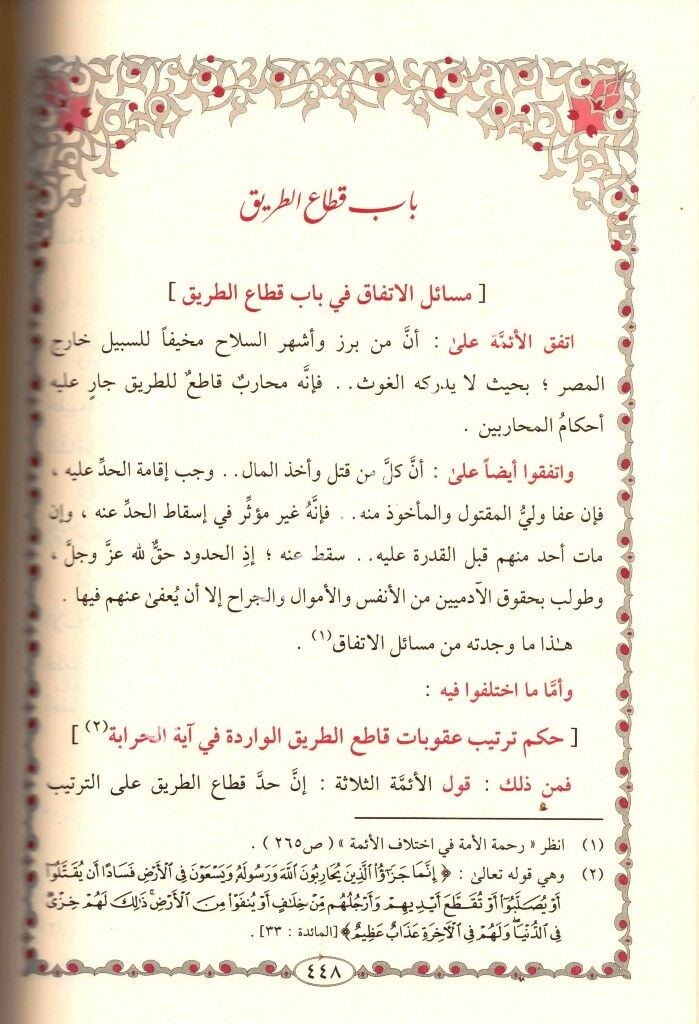 باب قطاع الطريق
[ مسائل الاتفاق في باب قطاع الطريق ]
اتفق الأئمَّة علىٰ : أنَّ من برز وأشهر السلاح مخيفاً للسبيل خارج
المصر ؛ بحيث لا يدركه الغوث . . فإنَّه محاربٌ قاطعٌ للطريق جارٍ عليه
أحكامُ المحاربين .
واتفقوا أيضاً علىٰ : أنَّ كلَّ من قتل وأخذ المال . . وجب إقامة الحدِّ عليه ،
فإن عفا وليُّ المقتول والمأخوذ منه . . فإنَّهُ غير مؤثِّر في إسقاط الحدِّ عنه ، وإن
مات أحد منهم قبل القدرة عليه . . سقط عنه ؛ إذِ الحدود حقٌّ لله عزَّ وجلَّ ،
وطولب بحقوق الآدميين من الأنفس والأموال والجراح إلا أن يُعفىٰ عنهم فيها .
هـٰذا ما وجدته من مسائل الاتفاق(١) .
وأمَّا ما اختلفوا فيه :
[ حكم ترتيب عقوبات قاطع الطريق الواردة في آية الحرابة(٢) ]
فمن ذلك : قول الأئمَّة الثلاثة : إنَّ حدَّ قطاع الطريق على الترتيب
(١) انظر « رحمة الأمة في اختلاف الأئمة » ( ص٢٦٥ ) .
(٢) وهي قوله تعالىٰ : ﴿ إِنَّمَا جَزَٰٓؤُا۟ ٱلَّذِينَ يُحَارِبُونَ ٱللَّهَ وَرَسُولَهُۥ وَيَسْعَوْنَ فِى ٱلْأَرْضِ فَسَادًا أَن يُقَتَّلُوٓا۟
أَوْ يُصَلَّبُوٓا۟ أَوْ تُقَطَّعَ أَيْدِيهِمْ وَأَرْجُلُهُم مِّنْ خِلَٰفٍ أَوْ يُنفَوْا۟ مِنَ ٱلْأَرْضِ ۚ ذَٰلِكَ لَهُمْ خِزْىٌ
فِى ٱلدُّنْيَا ۖ وَلَهُمْ فِى ٱلْـَٔاخِرَةِ عَذَابٌ عَظِيمٌ ﴾ [المائدة : ٣٣] .
٤٤٨